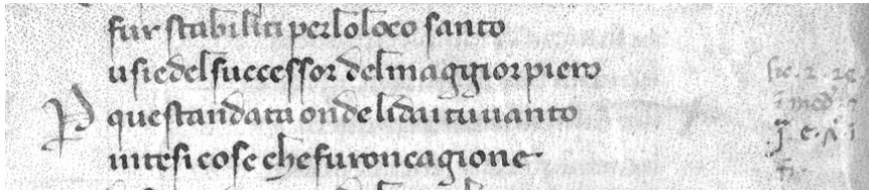 fur stabiliti perlo loco santo
usiedel successor del maggior piero
P questandata onde lidai tu uanto
intesi cose che furon cagione